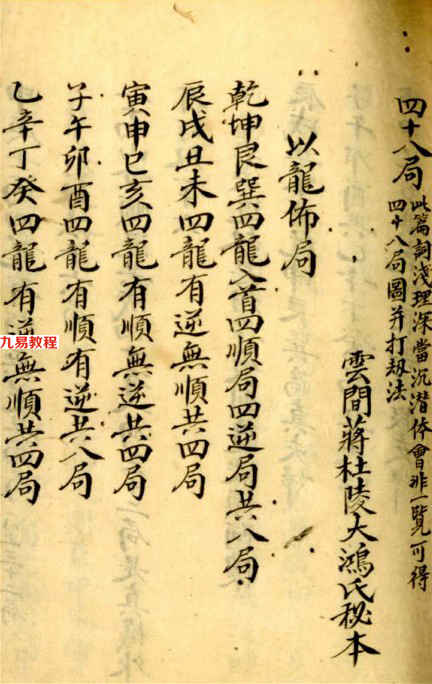 四十八局
此篇詞淺理深當沉潛体會非一覽可得
四十八局圖并打刼法
雲間蔣杜陵大鴻氏秘本
以龍佈局
乾坤艮巽四龍入首四順局四逆局共八局
辰戌丑未四龍有逆無順共四局
寅申巳亥四龍有順無逆共四局
子午卯酉四龍有順有逆共八局
乙辛丁癸四龍有逆無順共四局
九易教程